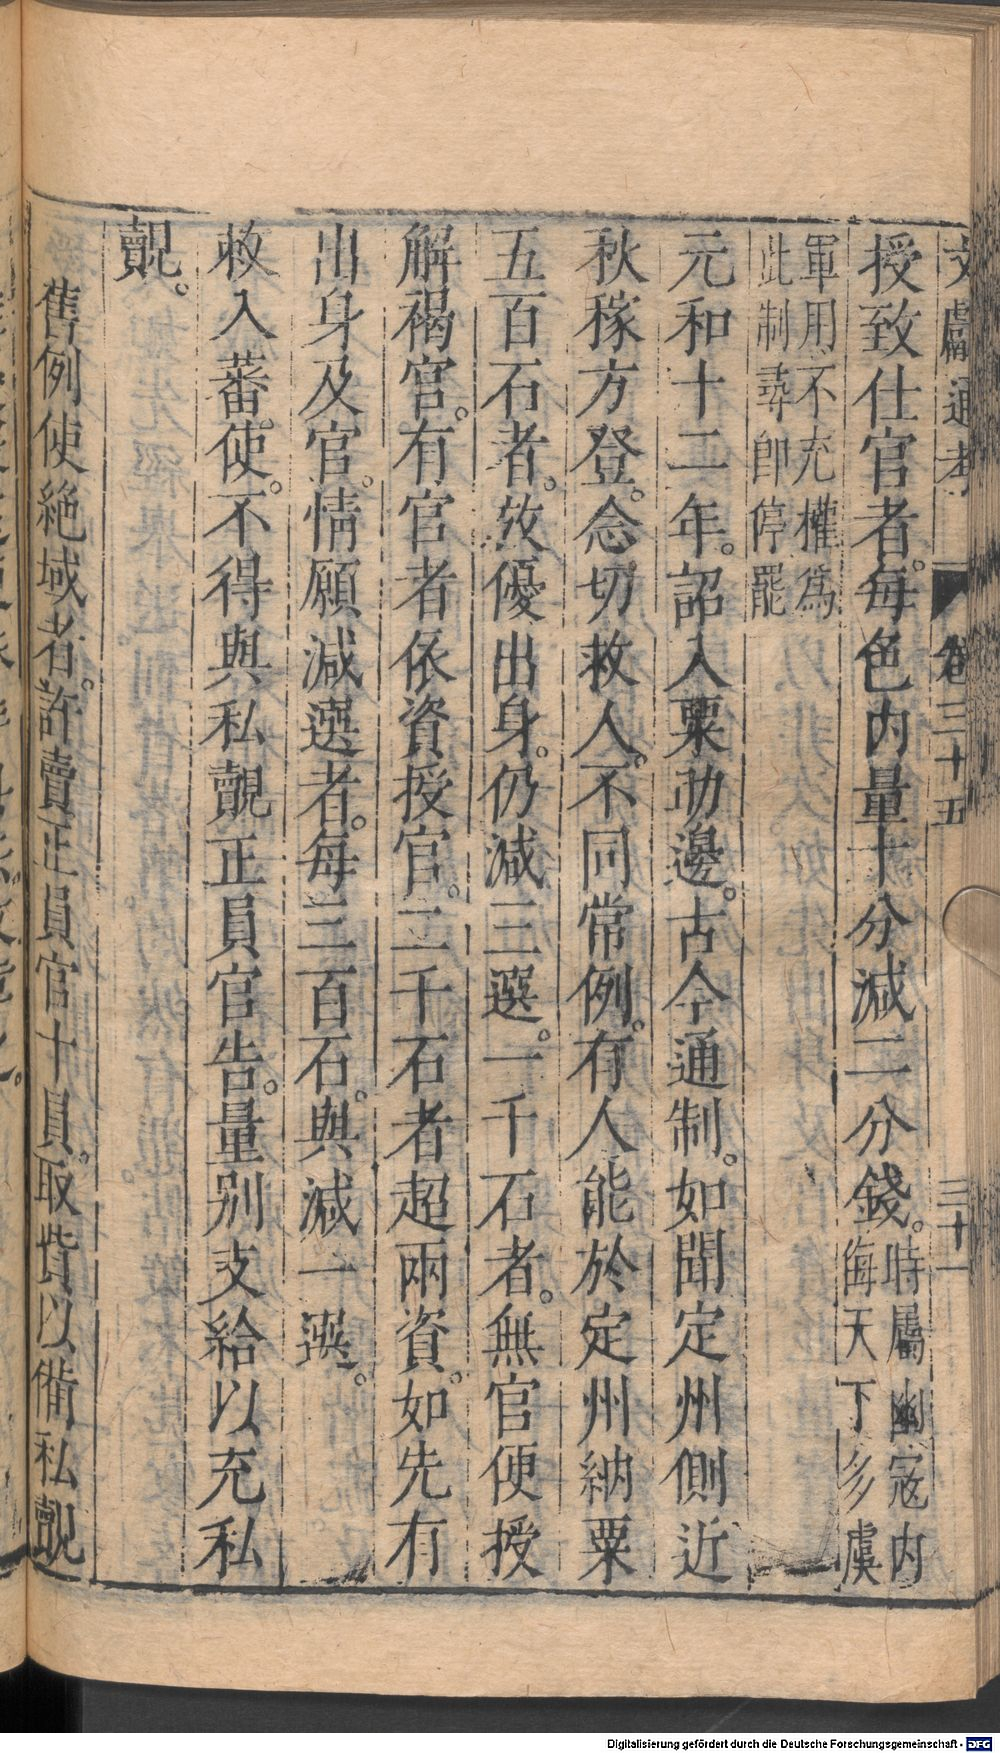 文獻通考 卷三十五 三十一
授致仕官者。每色内量十分減二分錢。時屬幽寇内
侮天下多虞
軍用不充權爲
此制尋即停罷
元和十二年。詔入粟助邊。古今通制。如聞定州側近
秋稼方登。念切救人。不同常例。有人能於定州納粟
五百石者。放優出身。仍減三選。一千石者。無官便授
解褐官。有官者依資授官。二千石者超兩資。如先有
出身及官。情願減選者。每三百石。與減一選。
敕入蕃使。不得與私覿正員官告。量别支給以充私
覿。
舊例使絶域者。許賣正員官十員。取貲以備私覿
Digitalisierung gefördert durch die Deutsche Forschungsgemeinschaft - DFG